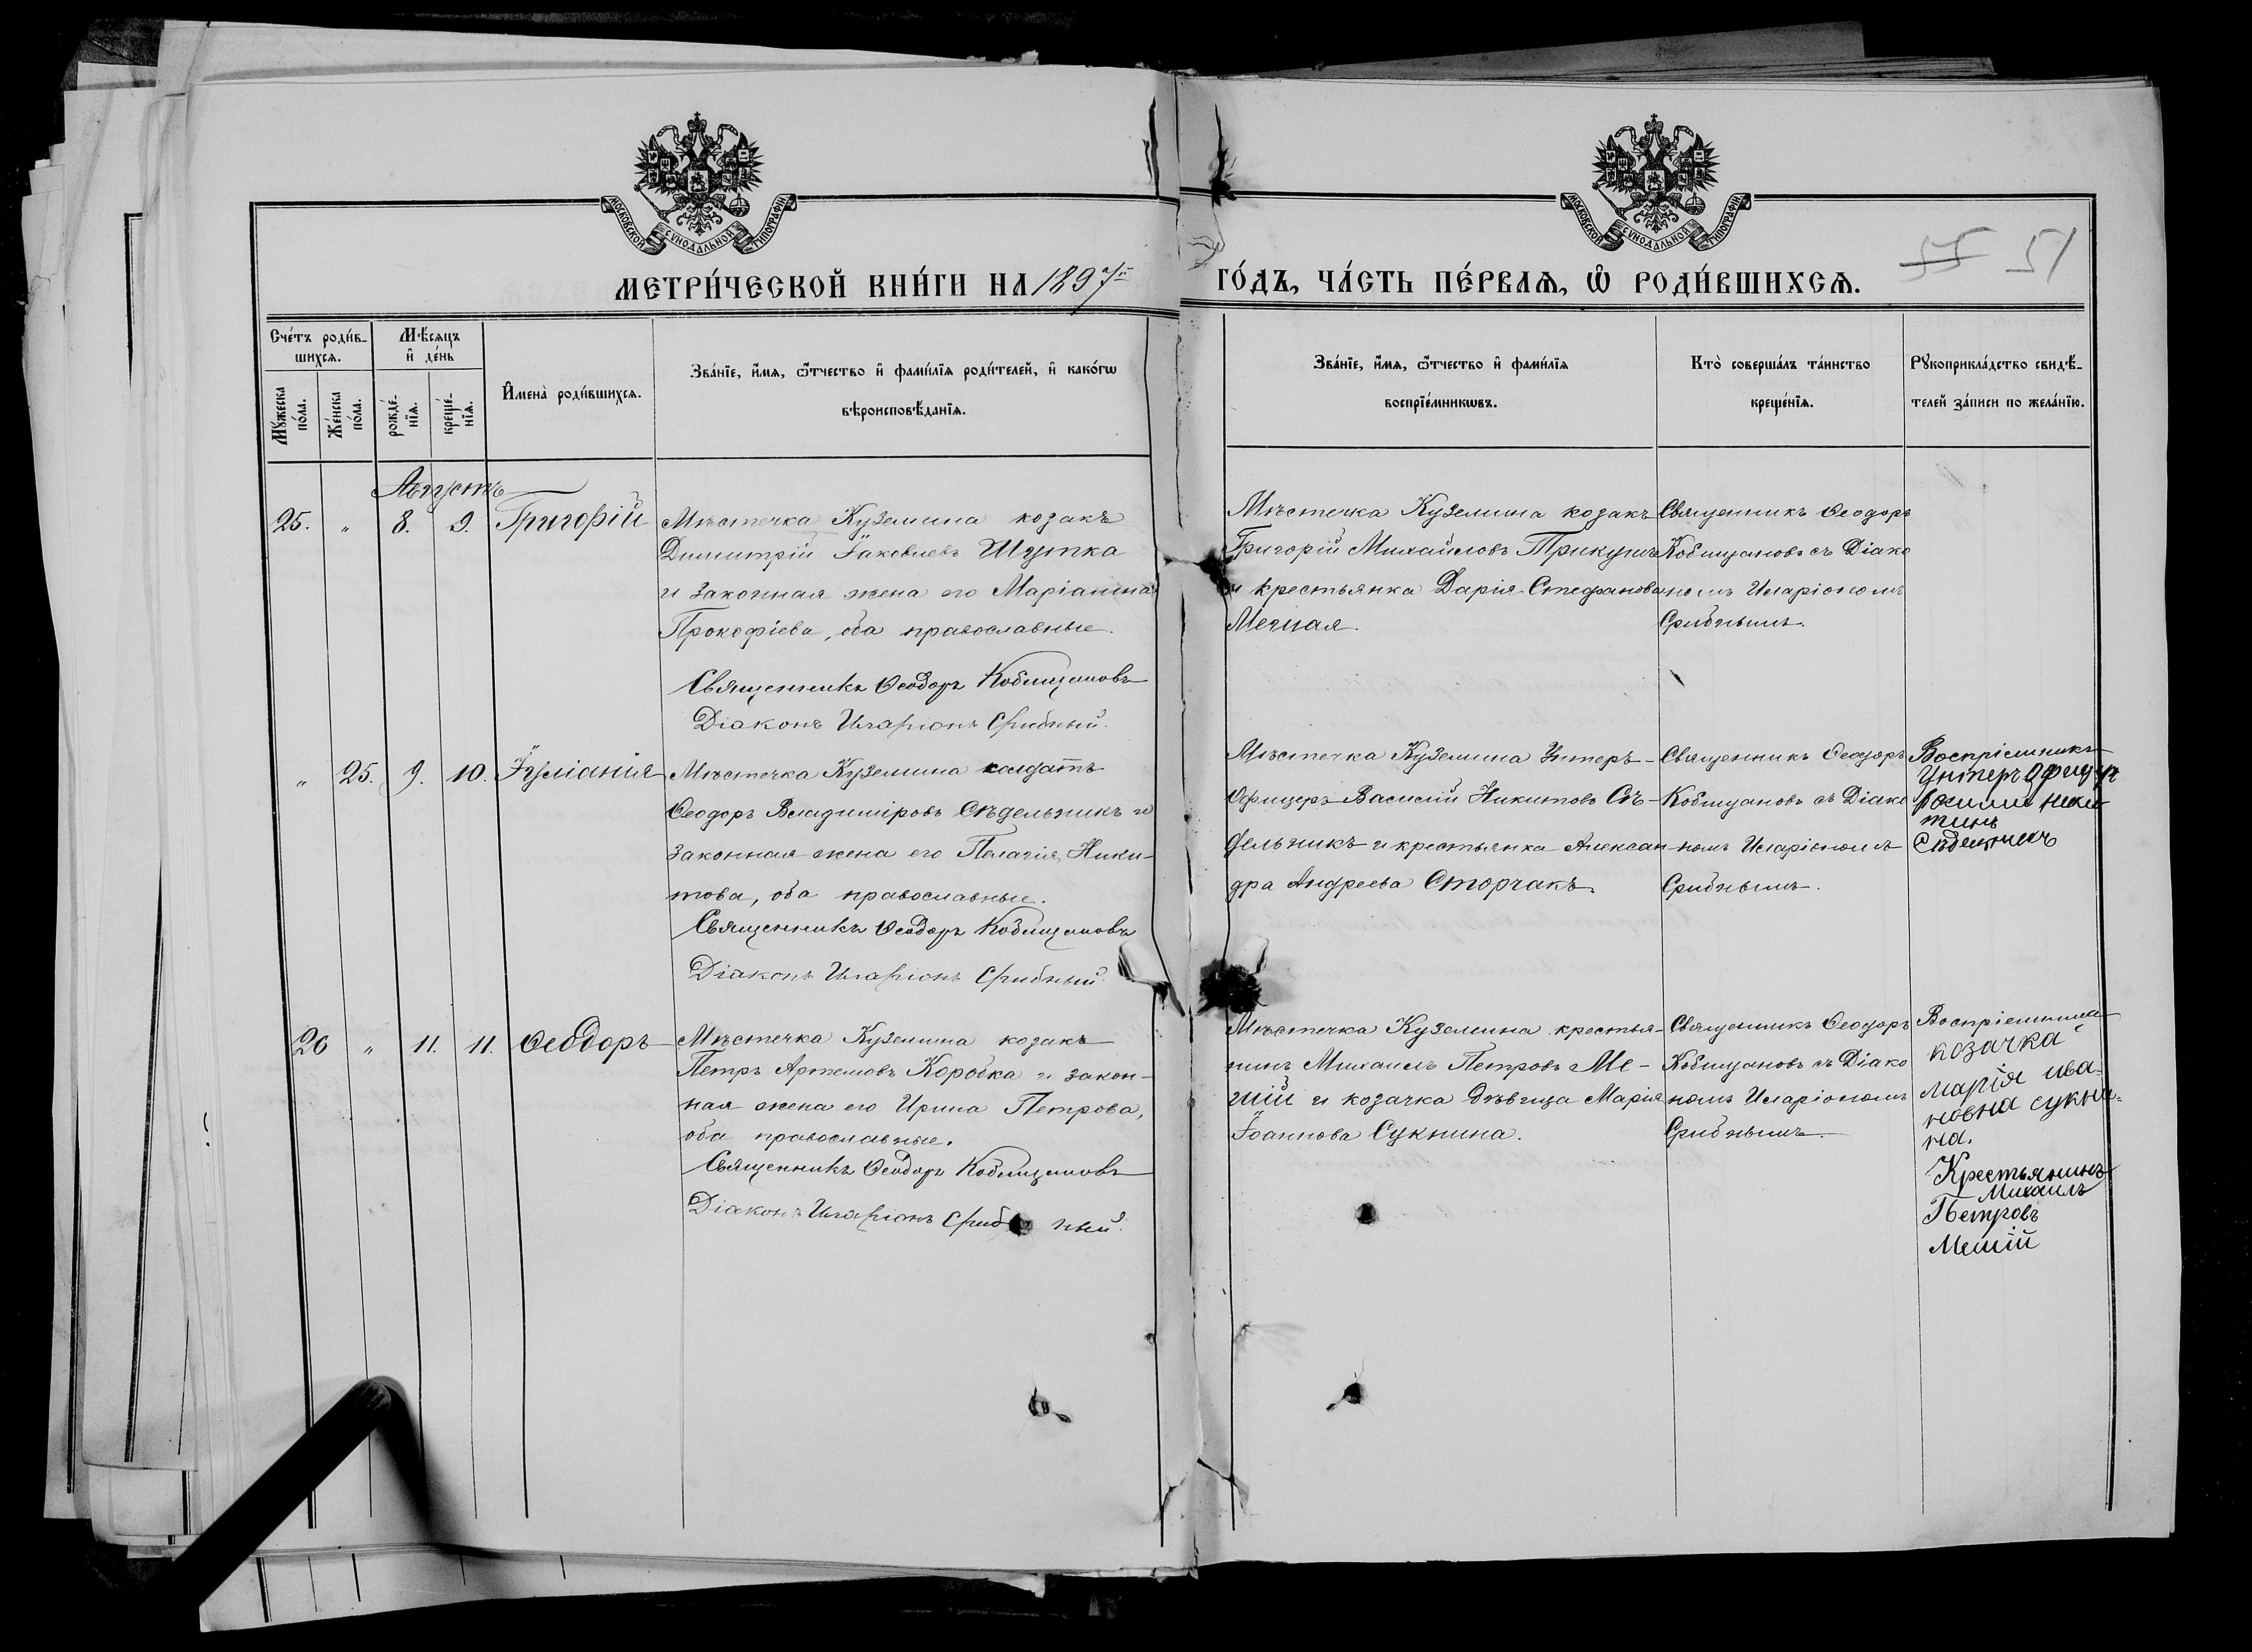 МОСКОВСКОЙ СУНОДАЛЬНОЙ ТИПОГРАФІИ
МОСКОВСКОЙ СУНОДАЛЬНОЙ ТИПОГРАФІИ
МЕТРИ́ЧЕСКОЙ КНИ́ГИ НА 1897й
ГО́ДЪ, ЧА́СТЬ ПЕ́РВАѦ, Ѡ҆ РОДИ́ВШИХСѦ.
55 51
Сче́тъ роди́в-
шихсѧ.
Мꙋ́жеска
по́ла.
Же́нска
по́ла.
Мѣ́сѧцъ
и҆ де́нь
рожде́-
нїѧ.
креще́-
нїѧ.
И҆мена̀ роди́вшихсѧ.
Зва́нїе, и҆́мѧ, ѻ҆́тчество и҆ фами́лїѧ роди́телей, и҆ како́гѡ
вѣроисповѣ́данїѧ.
Зва́нїе, и҆́мѧ, ѻ҆́тчество и҆ фами́лїѧ
воспрїе́мникѡвъ.
Кто̀ соверша́лъ та́инство
креще́нїѧ.
Рꙋкоприкла́дство свидѣ́-
телей за́писи по жела́нїю.
Августъ
25. " 8. 9. Григорій
Мѣстечка Куземина козакъ
Димитрій Іаковлевъ Шутка
и законная жена его Маріанна
Прокофіева, оба православные.
Священникъ Ѳеодоръ Кобищановъ
Діаконъ Иларіонъ Срибный.
Мѣстечка Куземина козакъ
Григорій Михайловъ Трикущ
и крестьянка Дарія Стефанова
Мечная.
Священникъ Ѳеодоръ
Кобищановъ съ Діако
номъ Иларіономъ
Срибнымъ.
" 25. 9. 10. Іуліанія
Мѣстечка Куземина солдатъ
Ѳеодоръ Владиміровъ Сѣдельникъ и
законная жена его Пелагія Ники-
това, оба православные.
Священникъ Ѳеодоръ Кобищановъ
Діаконъ Иларіонъ Срибный.
Мѣстечка Куземина Унтеръ-
Офицеръ Василій Никитовъ Сѣ-
дельникъ и крестьянка Алексан-
дра Андреева Сторчакъ.
Священникъ Ѳеодоръ
Кобищановъ съ Діако
номъ Иларіономъ
Срибнымъ.
Воспріемникъ
Унтеръ офицер
ники
тинъ
26 " 11. 11. Ѳеодоръ
Мѣстечка Куземина козакъ
Петръ Артемовъ Коробка и закон-
ная жена его Ирина Петрова,
оба православные.
Священникъ Ѳеодоръ Кобищановъ
Діаконъ Иларіонъ Срибный.
Мѣстечка Куземина крестья-
нинъ Михаилъ Петровъ Ме-
шій и козачка дѣвица Марія
Іоаннова Сукнина.
Священникъ Ѳеодоръ
Кобищановъ съ Діако
номъ Иларіономъ
Срибнымъ.
Воспріемники
козачка
марія ива-
новна сукни-
на.
Крестьянинъ
Михаилъ
Петровъ
Мешій